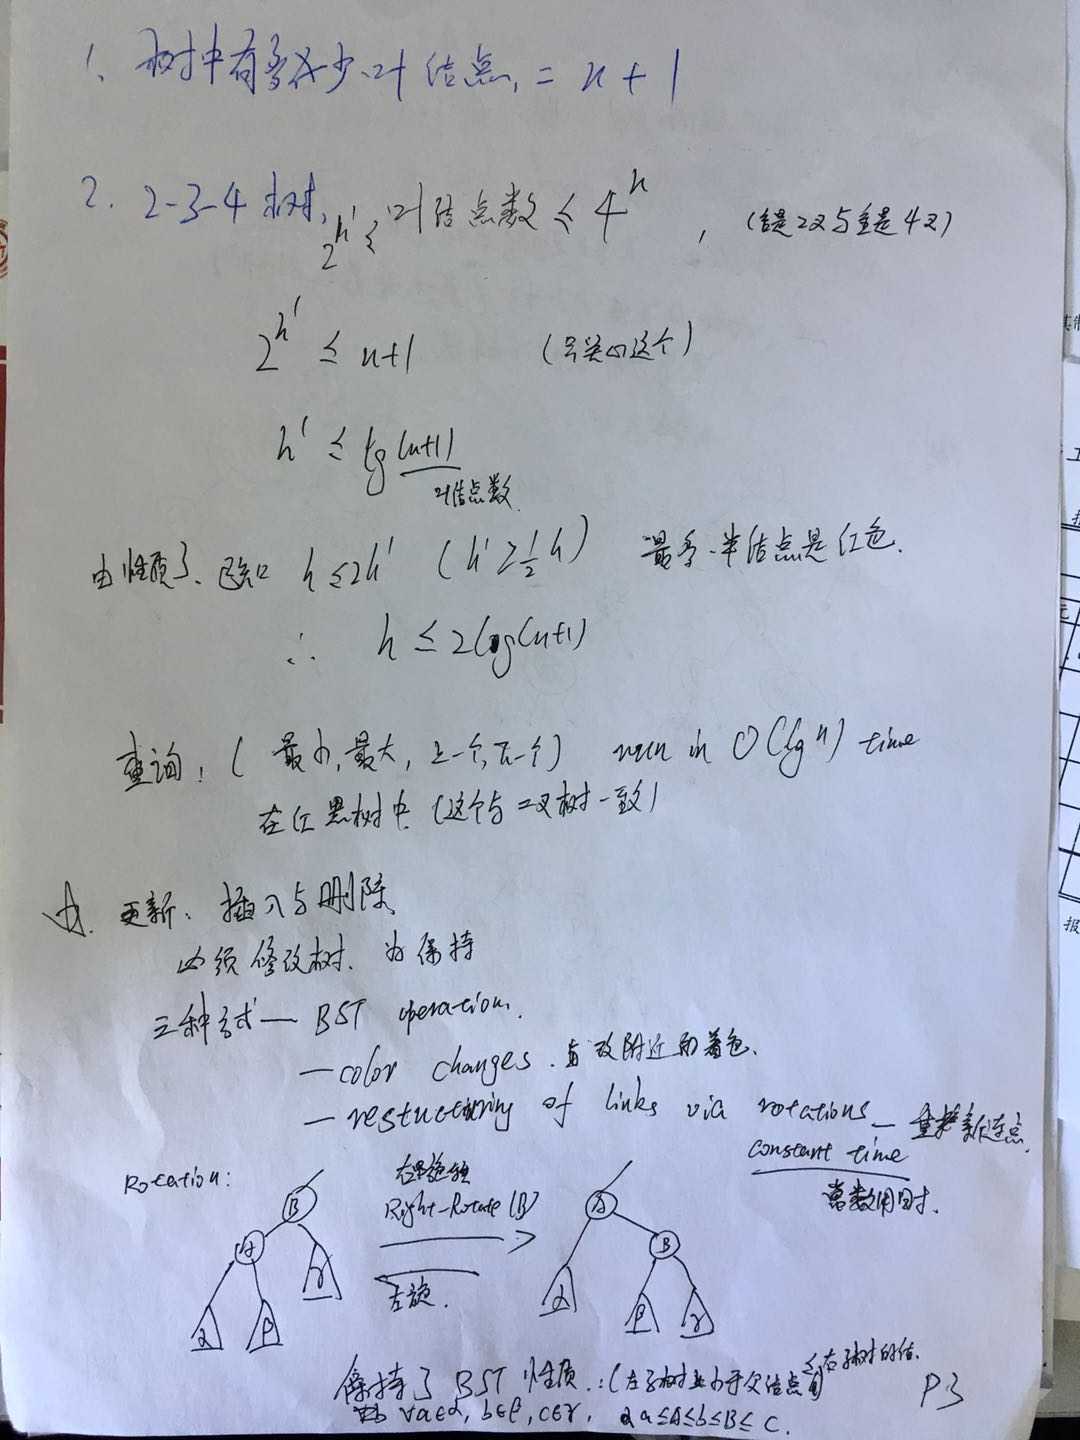 1、树中有多少叶结点, = n + 1
2. 2-3-4 树, 2^h' ≤ 叶结点数 ≤ 4^h' , (全是2叉与全是4叉)
2^h' ≤ n+1 (只关心这个)
h' ≤ lg(n+1)
叶结点数
由性质3、已知 h ≤ 2h' (h' ≥ 1/2 h) 最多一半结点是红色.
∴ h ≤ 2log(n+1)
查询: ( 最小, 最大, 上一个, 下一个) run in O(lg n) time
在红黑树中 (这个与二叉树一致)
更新: 插入与删除
必须修改树. 为保持
三种方式— BST operation.
— color changes. 改附近的着色.
— restucturing of links via rotations — 重新连点.
constant time
常数用时.
Rotation: 右旋转
Right-Rotate (B)
左旋.
B A γ α β
A B α β γ
保持了 BST 性质:(左子树小于父结点 ≤ 右子树的值.
∀a∈α, b∈β, c∈γ, a≤A≤b≤B≤C.
P3